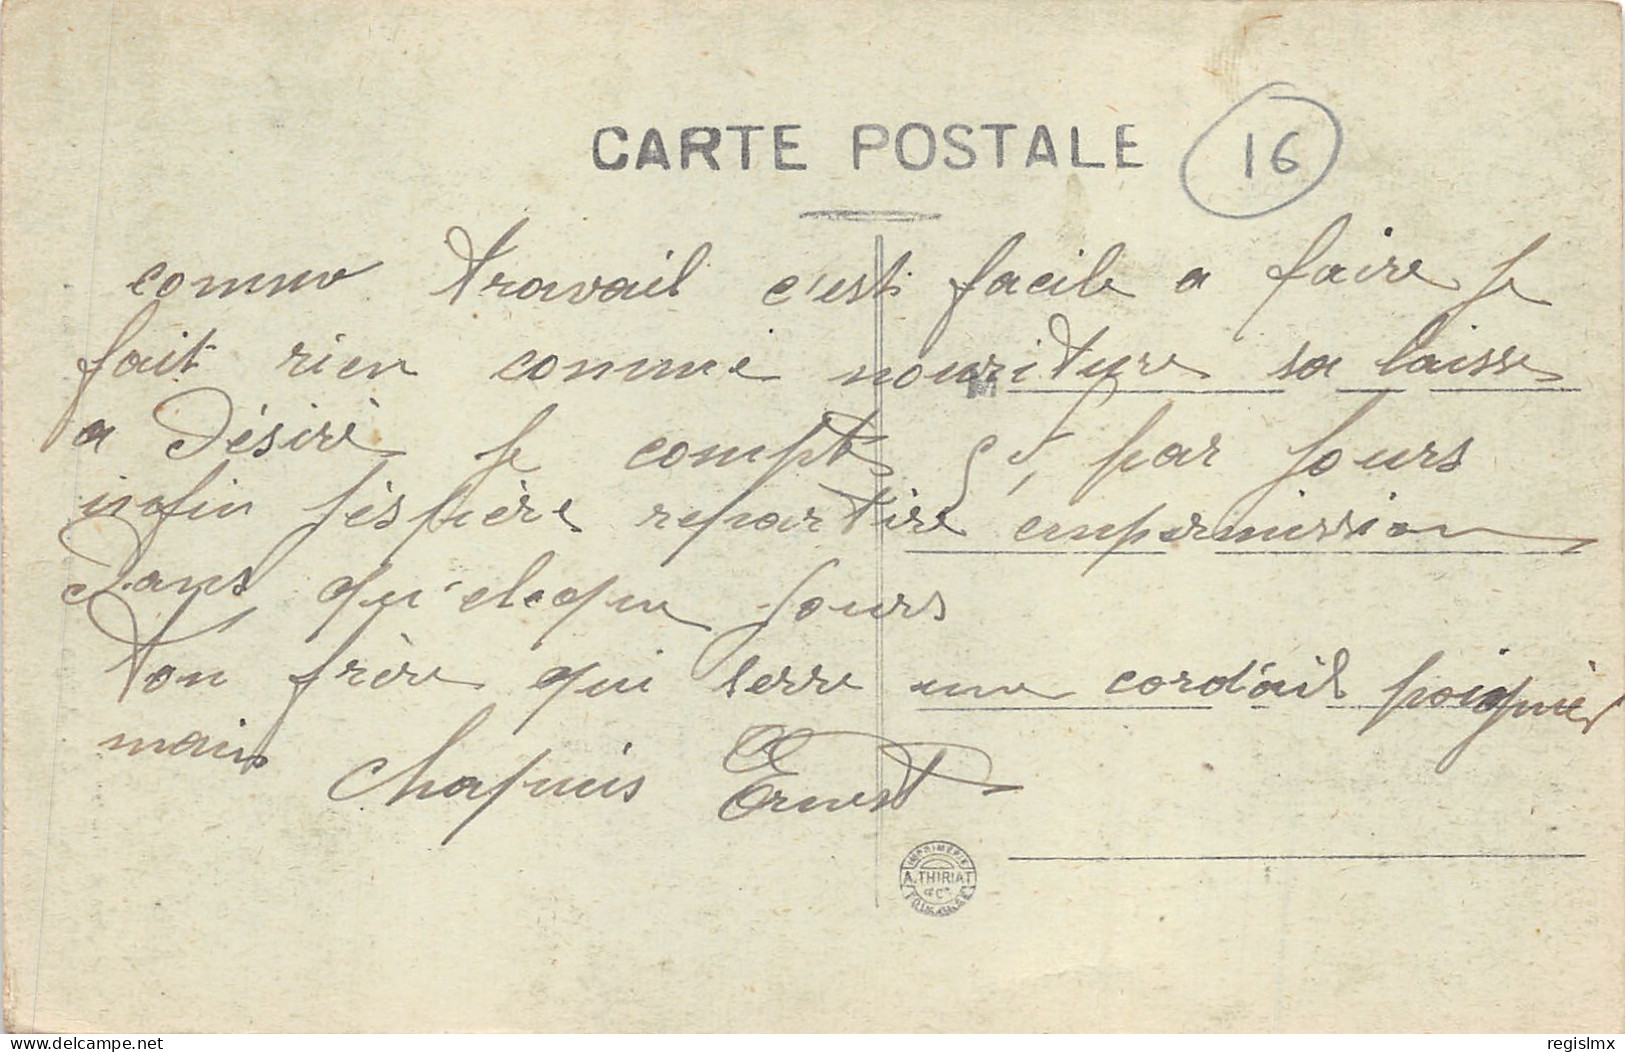 CARTE POSTALE
16
comme travail c'est facile a faire je
fait rien comme nouriture sa laisse
a désiré je compte par jours
M
infin j'éspière repartire enpermission
dans qu'eleque jours
ton frère qui serre une cord'ail poignier
main Chapuis Ernest
IMPRIMERIE
A. THIRIAT
& Cie
TOULOUSE
delcampe.net
regislmx